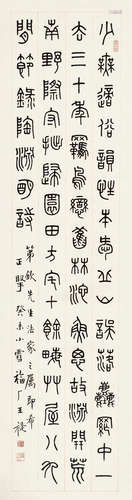 少無適俗韻性本愛丘山誤落塵網中一
去三十年羈鳥戀舊林池魚思故淵開荒
南野際守拙歸園田方宅十餘畝艸屋八九
間節錄陶淵明詩
先生法家之屬即希
正擘 癸未小雪福厂王禔